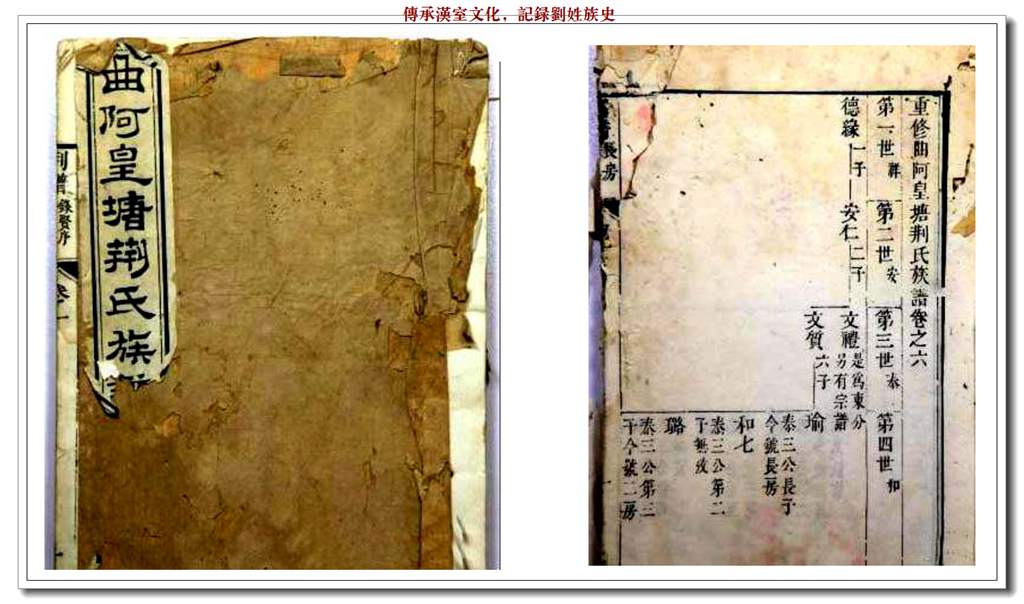 傳承漢室文化，記録劉姓族史
曲阿皇塘荆氏族譜
重修曲阿皇塘荆氏族譜卷之六
第一世 祥
第二世 安
第三世 泰
第四世 和
德緣 一子
安仁 二子
文禮 是爲東分
另有宗譜
文質 六子
瑜 泰三公長子
今號長房
和七 泰三公第二
子無攷
璐 泰三公第三
子今號二房
長房